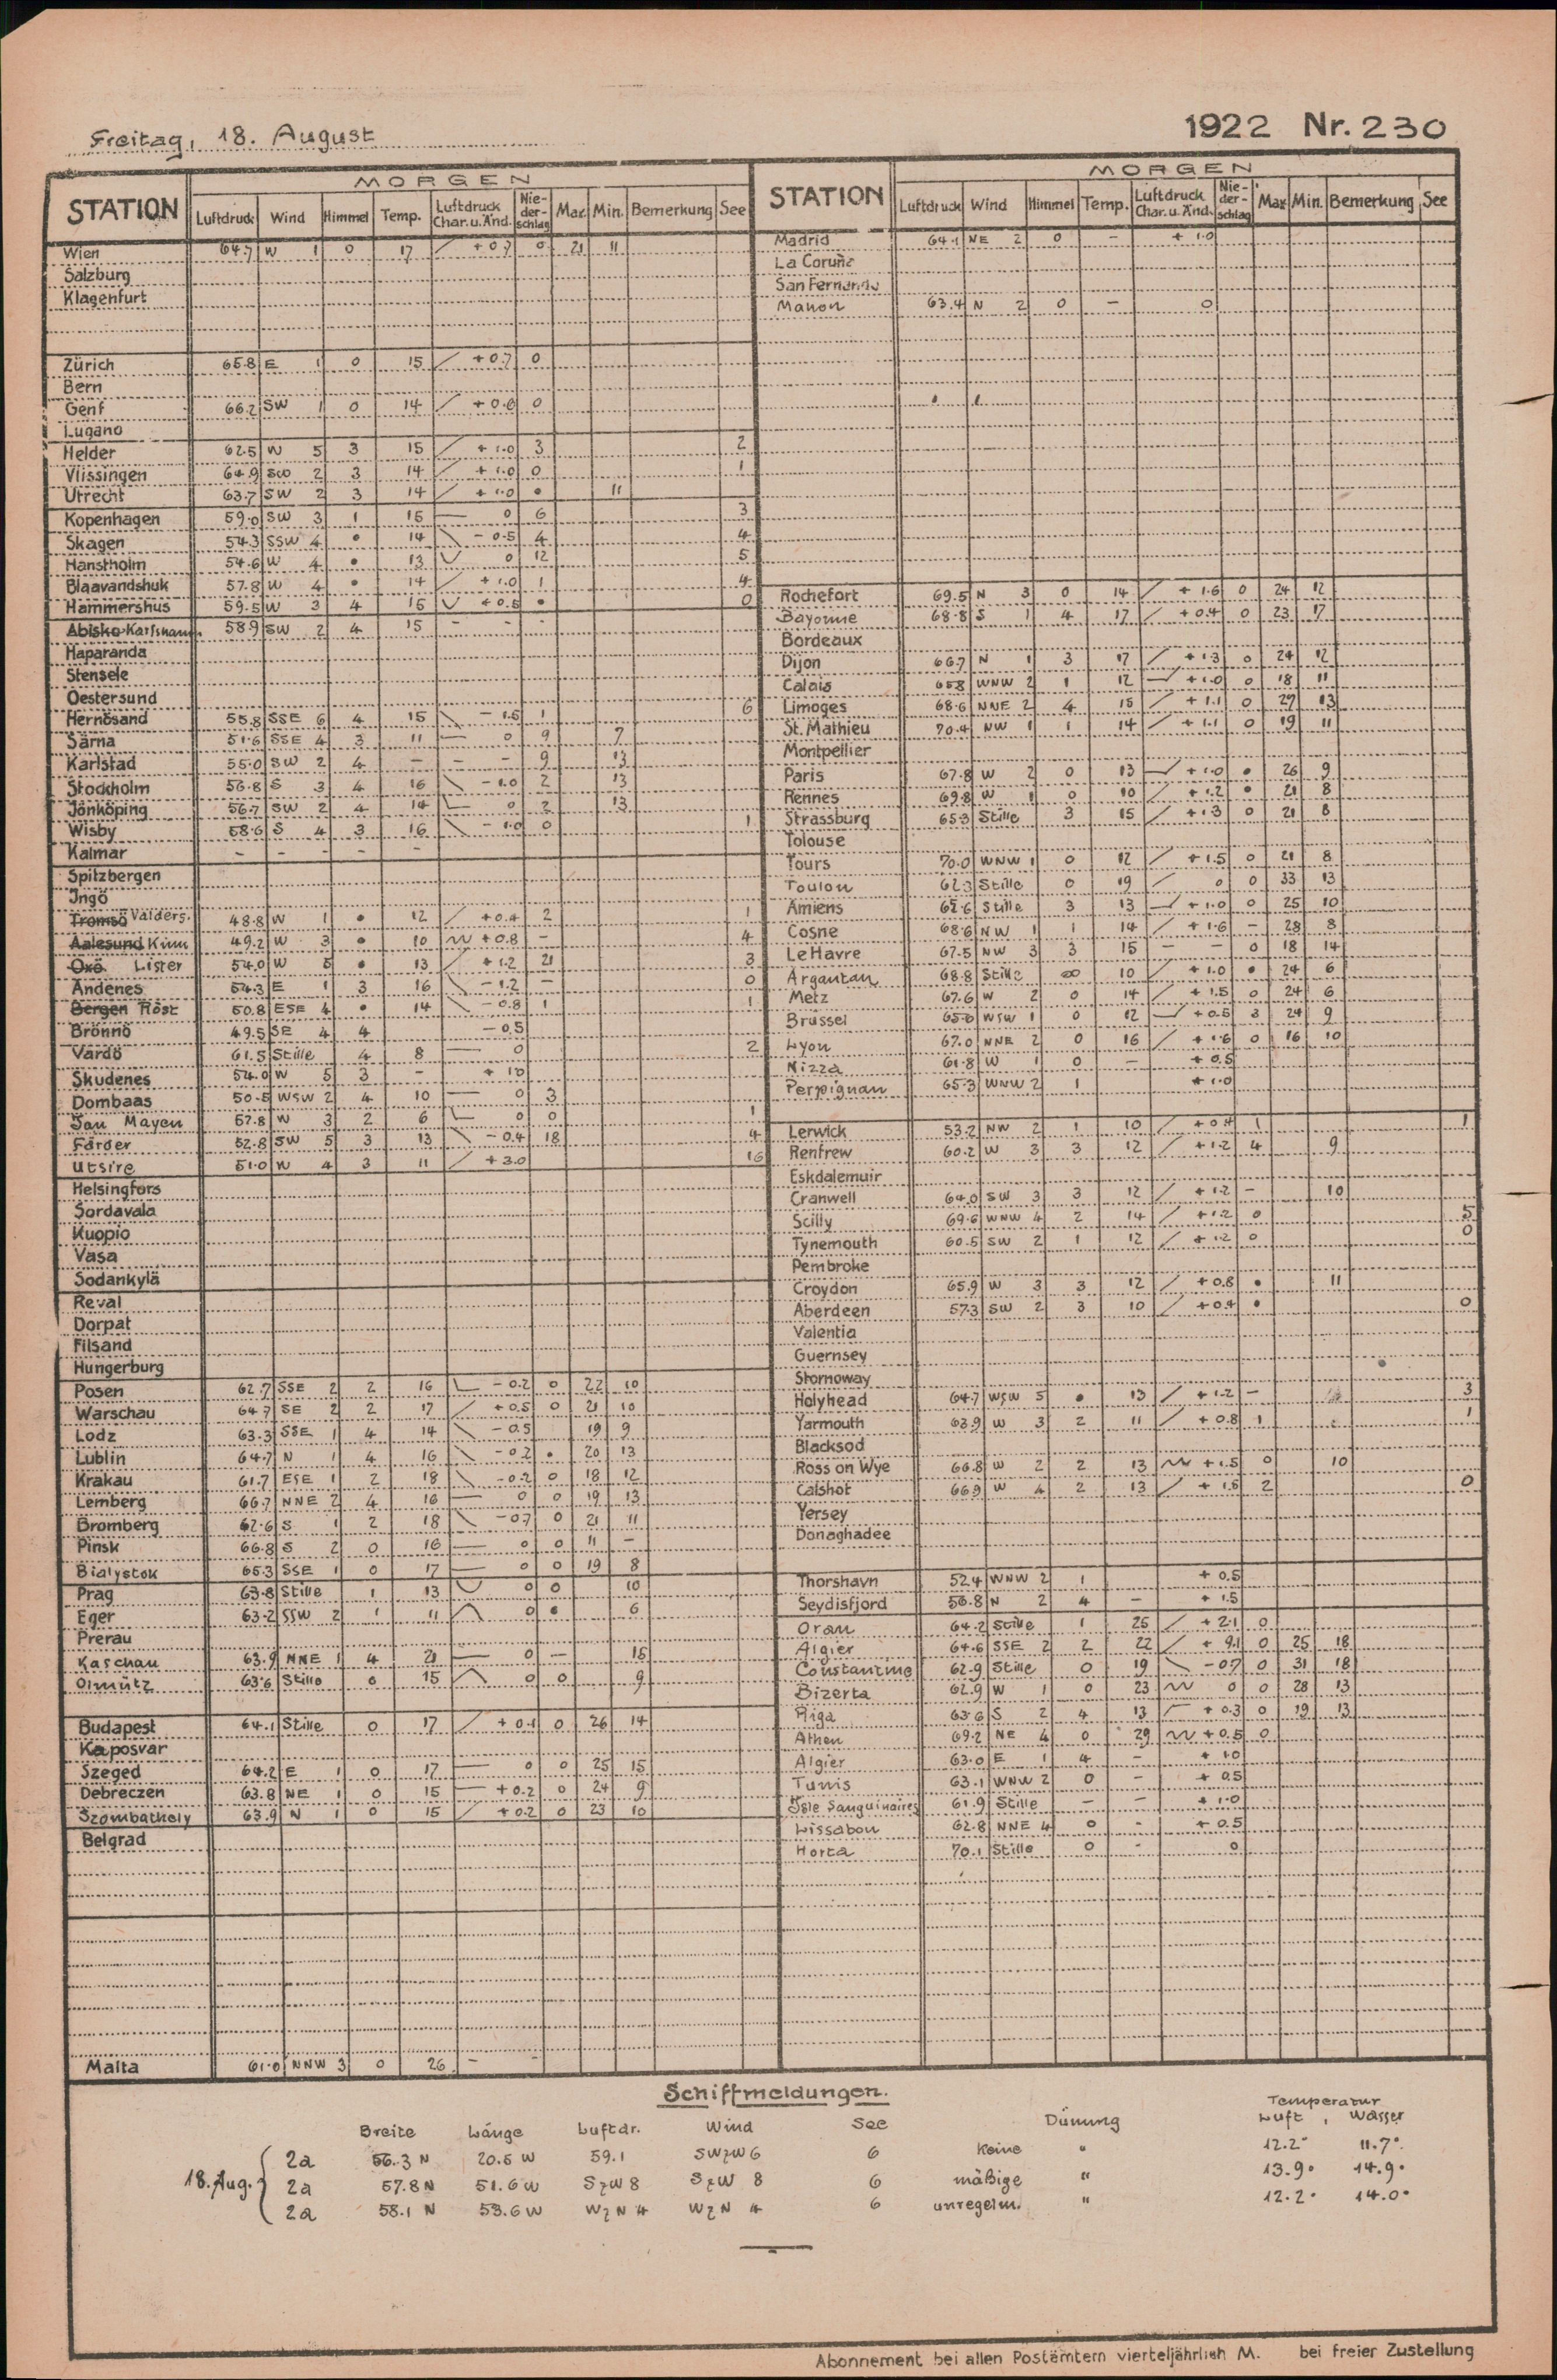 Freitag, 18. August
1922 Nr. 230
MORGEN
STATION Luftdruck Wind Himmel Temp. Luftdruck Char. u. Änd. Nie-der-schlag Max. Min. Bemerkung See
Wien 64.7 W 1 0 17 + 0.7 0 21 11
Salzburg
Klagenfurt
Zürich 65.8 E 1 0 15 + 0.7 0
Bern
Genf 66.2 SW 1 0 14 0
Lugano
Helder 62.5 W 5 3 15 + 1.0 3 2
Vlissingen 64.9 SW 2 3 14 + 1.0 0 1
Utrecht 63.7 SW 2 3 14 + 1.0 • 11
Kopenhagen 59.0 SW 3 1 15 — 0 6 3
Skagen 54.3 SSW 4 • 14 - 0.5 4 4
Hanstholm 54.6 W 4 • 13 0 12 5
Blaavandshuk 57.8 W 4 • 14 + 1.0 1 4
Hammershus 59.5 W 3 4 15 + 0.5 • 0
Abisko Karlshamn 58.9 SW 2 4 15 - - -
Haparanda
Stensele
Oestersund
Hernösand 55.8 SSE 6 4 15 - 1.5 1 6
Särna 51.6 SSE 4 3 11 — 0 9 7
Karlstad 55.0 SW 2 4 - - - 9 13
Stockholm 56.8 S 3 4 16 - 1.0 2 13
Jönköping 56.7 SW 2 4 14 0 2 13
Wisby 58.6 S 4 3 16 - 1.0 0 1
Kalmar - - - - -
Spitzbergen
Ingö
Tromsö Valders. 48.8 W 1 • 12 + 0.4 2 1
Aalesund Kinn 49.2 W 3 • 10 + 0.8 - 4
Oxö Lister 54.0 W 5 • 13 + 1.2 21 3
Andenes 54.3 E 1 3 16 - 1.2 - 0
Bergen Röst 50.8 ESE 4 • 14 - 0.8 1 1
Brönnö 49.5 SE 4 4 - 0.5
Vardö 61.5 Stille 4 8 — 0 2
Skudenes 54.0 W 5 3 - + 1.0
Dombaas 50.5 WSW 2 4 10 — 0 3
Jan Mayen 57.8 W 3 2 6 0 0 1
Färder 52.8 SW 5 3 13 - 0.4 18 4
Utsire 51.0 W 4 3 11 + 3.0 16
Helsingfors
Sordavala
Kuopio
Vasa
Sodankylä
Reval
Dorpat
Filsand
Hungerburg
Posen 62.7 SSE 2 2 16 - 0.2 0 22 10
Warschau 64.7 SE 2 2 17 + 0.5 0 21 10
Lodz 63.3 SSE 1 4 14 - 0.5 19 9
Lublin 64.7 N 1 4 16 - 0.2 • 20 13
Krakau 61.7 ESE 1 2 18 - 0.2 0 18 12
Lemberg 66.7 NNE 2 4 16 — 0 0 19 13
Bromberg 62.6 S 1 2 18 - 0.7 0 21 11
Pinsk 66.8 S 2 0 16 — 0 0 11 -
Bialystok 65.3 SSE 1 0 17 — 0 0 19 8
Prag 63.8 Stille 1 13 0 0 10
Eger 63.2 SSW 2 1 11 0 • 6
Prerau
Kaschau 63.9 NNE 1 4 21 — 0 - 15
Olmütz 63.6 Stille 0 15 0 0 9
Budapest 64.1 Stille 0 17 + 0.1 0 26 14
Kaposvar
Szeged 64.2 E 1 0 17 — 0 0 25 15
Debreczen 63.8 NE 1 0 15 — + 0.2 0 24 9
Szombathely 63.9 N 1 0 15 + 0.2 0 23 10
Belgrad
Malta 61.0 NNW 3 0 26 - -
MORGEN
STATION Luftdruck Wind Himmel Temp. Luftdruck Char. u. Änd. Nie-der-schlag Max Min. Bemerkung See
Madrid 64.1 NE 2 0 - + 1.0
La Coruña
San Fernando
Mahon 63.4 N 2 0 - 0
Rochefort 69.5 N 3 0 14 + 1.6 0 24 12
Bayonne 68.8 S 1 4 17 + 0.4 0 23 17
Bordeaux
Dijon 66.7 N 1 3 17 + 1.3 0 24 12
Calais 65.8 WNW 2 1 12 + 1.0 0 18 11
Limoges 68.6 NNE 2 4 15 + 1.1 0 27 13
St. Mathieu 70.4 NW 1 1 14 + 1.1 0 19 11
Montpellier
Paris 67.8 W 2 0 13 + 1.0 • 26 9
Rennes 69.8 W 1 0 10 + 1.2 • 21 8
Strassburg 65.3 Stille 3 15 + 1.3 0 21 8
Tolouse
Tours 70.0 WNW 1 0 12 + 1.5 0 21 8
Toulon 62.3 Stille 0 19 0 0 33 13
Amiens Stille 3 13 + 1.0 0 25 10
Cosne 68.6 NW 1 1 14 + 1.6 - 28 8
Le Havre 67.5 NW 3 3 15 - - 0 18 14
Argantan 68.8 Stille ∞ 10 + 1.0 • 24 6
Metz 67.6 W 2 0 14 + 1.5 0 24 6
Brüssel WSW 1 0 12 + 0.5 3 24 9
Lyon 67.0 NNE 2 0 16 + 1.6 0 16 10
Nizza 61.8 W 1 0 - + 0.5
Perpignan 65.3 WNW 2 1 + 1.0
Lerwick 53.2 NW 2 1 10 + 0.4 1 1
Renfrew 60.2 W 3 3 12 + 1.2 4 9
Eskdalemuir
Cranwell 64.0 SW 3 3 12 + 1.2 - 10
Scilly 69.6 WNW 4 2 14 + 1.2 0 5
Tynemouth 60.5 SW 2 1 12 + 1.2 0 0
Pembroke
Croydon 65.9 W 3 3 12 + 0.8 • 11
Aberdeen 57.3 SW 2 3 10 + 0.4 • 0
Valentia
Guernsey
Stornoway
Holyhead 64.7 WSW 5 • 13 + 1.2 - 3
Yarmouth 63.9 W 3 2 11 + 0.8 1 1
Blacksod
Ross on Wye 66.8 W 2 2 13 + 1.5 0 10
Calshot 66.9 W 4 2 13 + 1.5 2 0
Yersey
Donaghadee
Thorshavn 52.4 WNW 2 1 + 0.5
Seydisfjord 56.8 N 2 4 - + 1.5
Oran 64.2 Stille 1 25 + 2.1 0
Algier 64.6 SSE 2 2 22 + 9.1 0 25 18
Constantine 62.9 Stille 0 19 - 0.7 0 31 18
Bizerta 62.9 W 1 0 23 0 0 28 13
Riga 63.6 S 2 4 13 + 0.3 0 19 13
Athen 69.2 NE 4 0 29 + 0.5 0
Algier 63.0 E 1 4 - + 1.0
Tunis 63.1 WNW 2 0 - + 0.5
Isle Sanguinaires 61.9 Stille - - + 1.0
Lissabon 62.8 NNE 4 0 - + 0.5
Horta 70.1 Stille 0 - 0
Schiffmeldungen.
Breite Länge Luftdr. Wind See Dünung Temperatur Luft, Wasser
18. Aug. 2a 56.3 N 20.5 W 59.1 SWzW 6 6 keine " 12.2° 11.7°
2a 57.8 N 51.6 W SzW 8 SzW 8 6 mäßige " 13.9° 14.9°
2a 58.1 N 53.6 W WzN 4 WzN 4 6 unregelm. " 12.2° 14.0°
Abonnement bei allen Postämtern vierteljährlich M. bei freier Zustellung